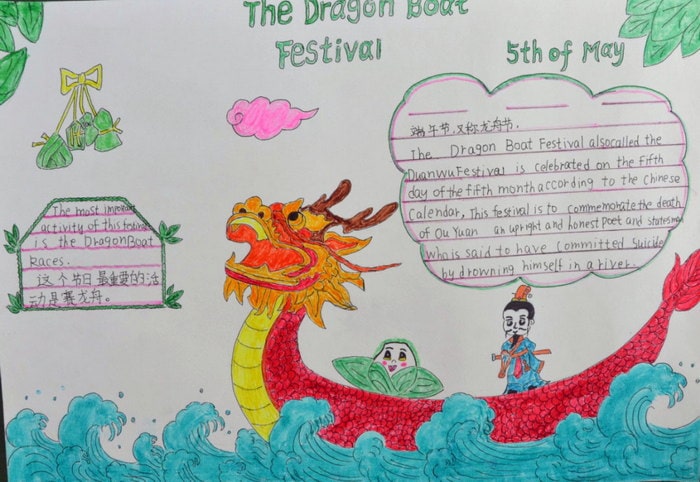 The Dragon Boat
Festival
5th of May
端午节,又称龙舟节.
The Dragon Boat Festival alsocalled the
DuanwuFestival is celebrated on the fifth
day of the fifth month according to the Chinese
Calendar. This festival is to commemorate the death
of Qu Yuan an upright and honest Poet and statesman
who is said to have committed suicide
by drowning himself in a river.
The most important
activity of this festival
is the DragonBoat
Races.
这个节日最重要的活
动是赛龙舟。